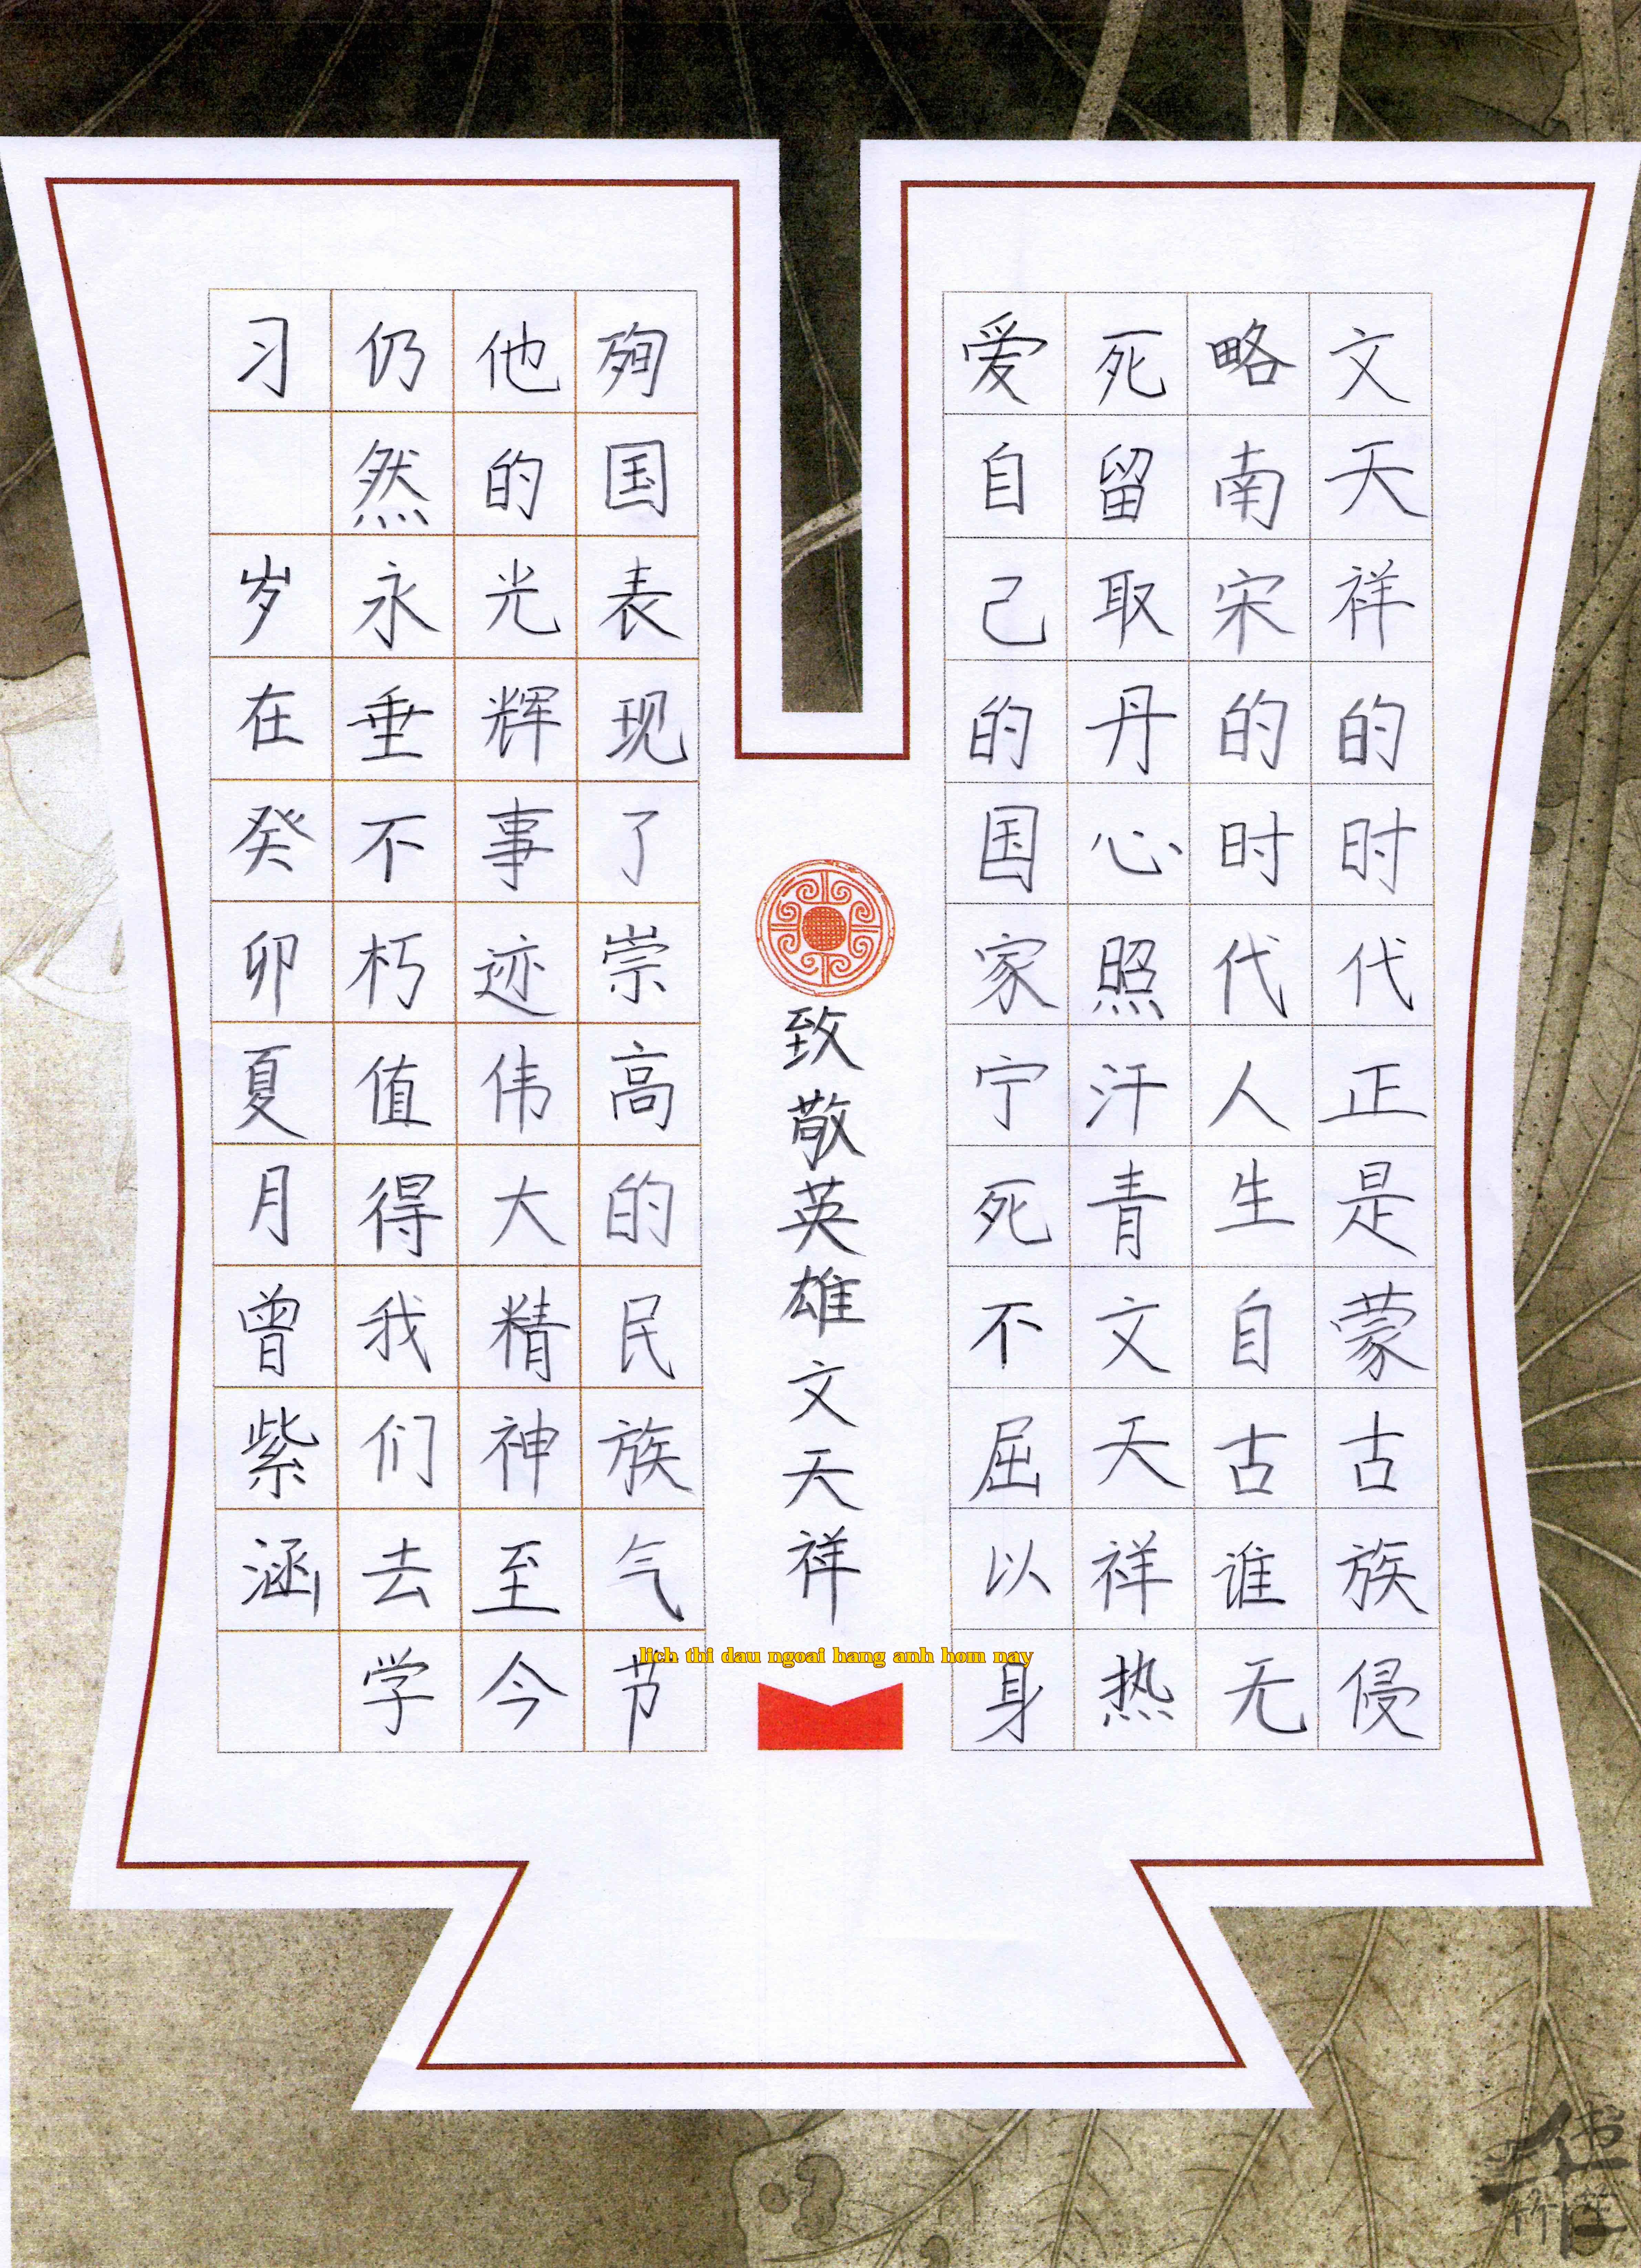 文天祥的时代正是蒙古族侵
略南宋的时代人生自古谁无
死留取丹心照汗青文天祥热
爱自己的国家宁死不屈以身
致敬英雄文天祥
殉国表现了崇高的民族气节
他的光辉事迹伟大精神至今
仍然永垂不朽值得我们去学
习 岁在癸卯夏月曾紫涵
lich thi dau ngoai hang anh hom nay